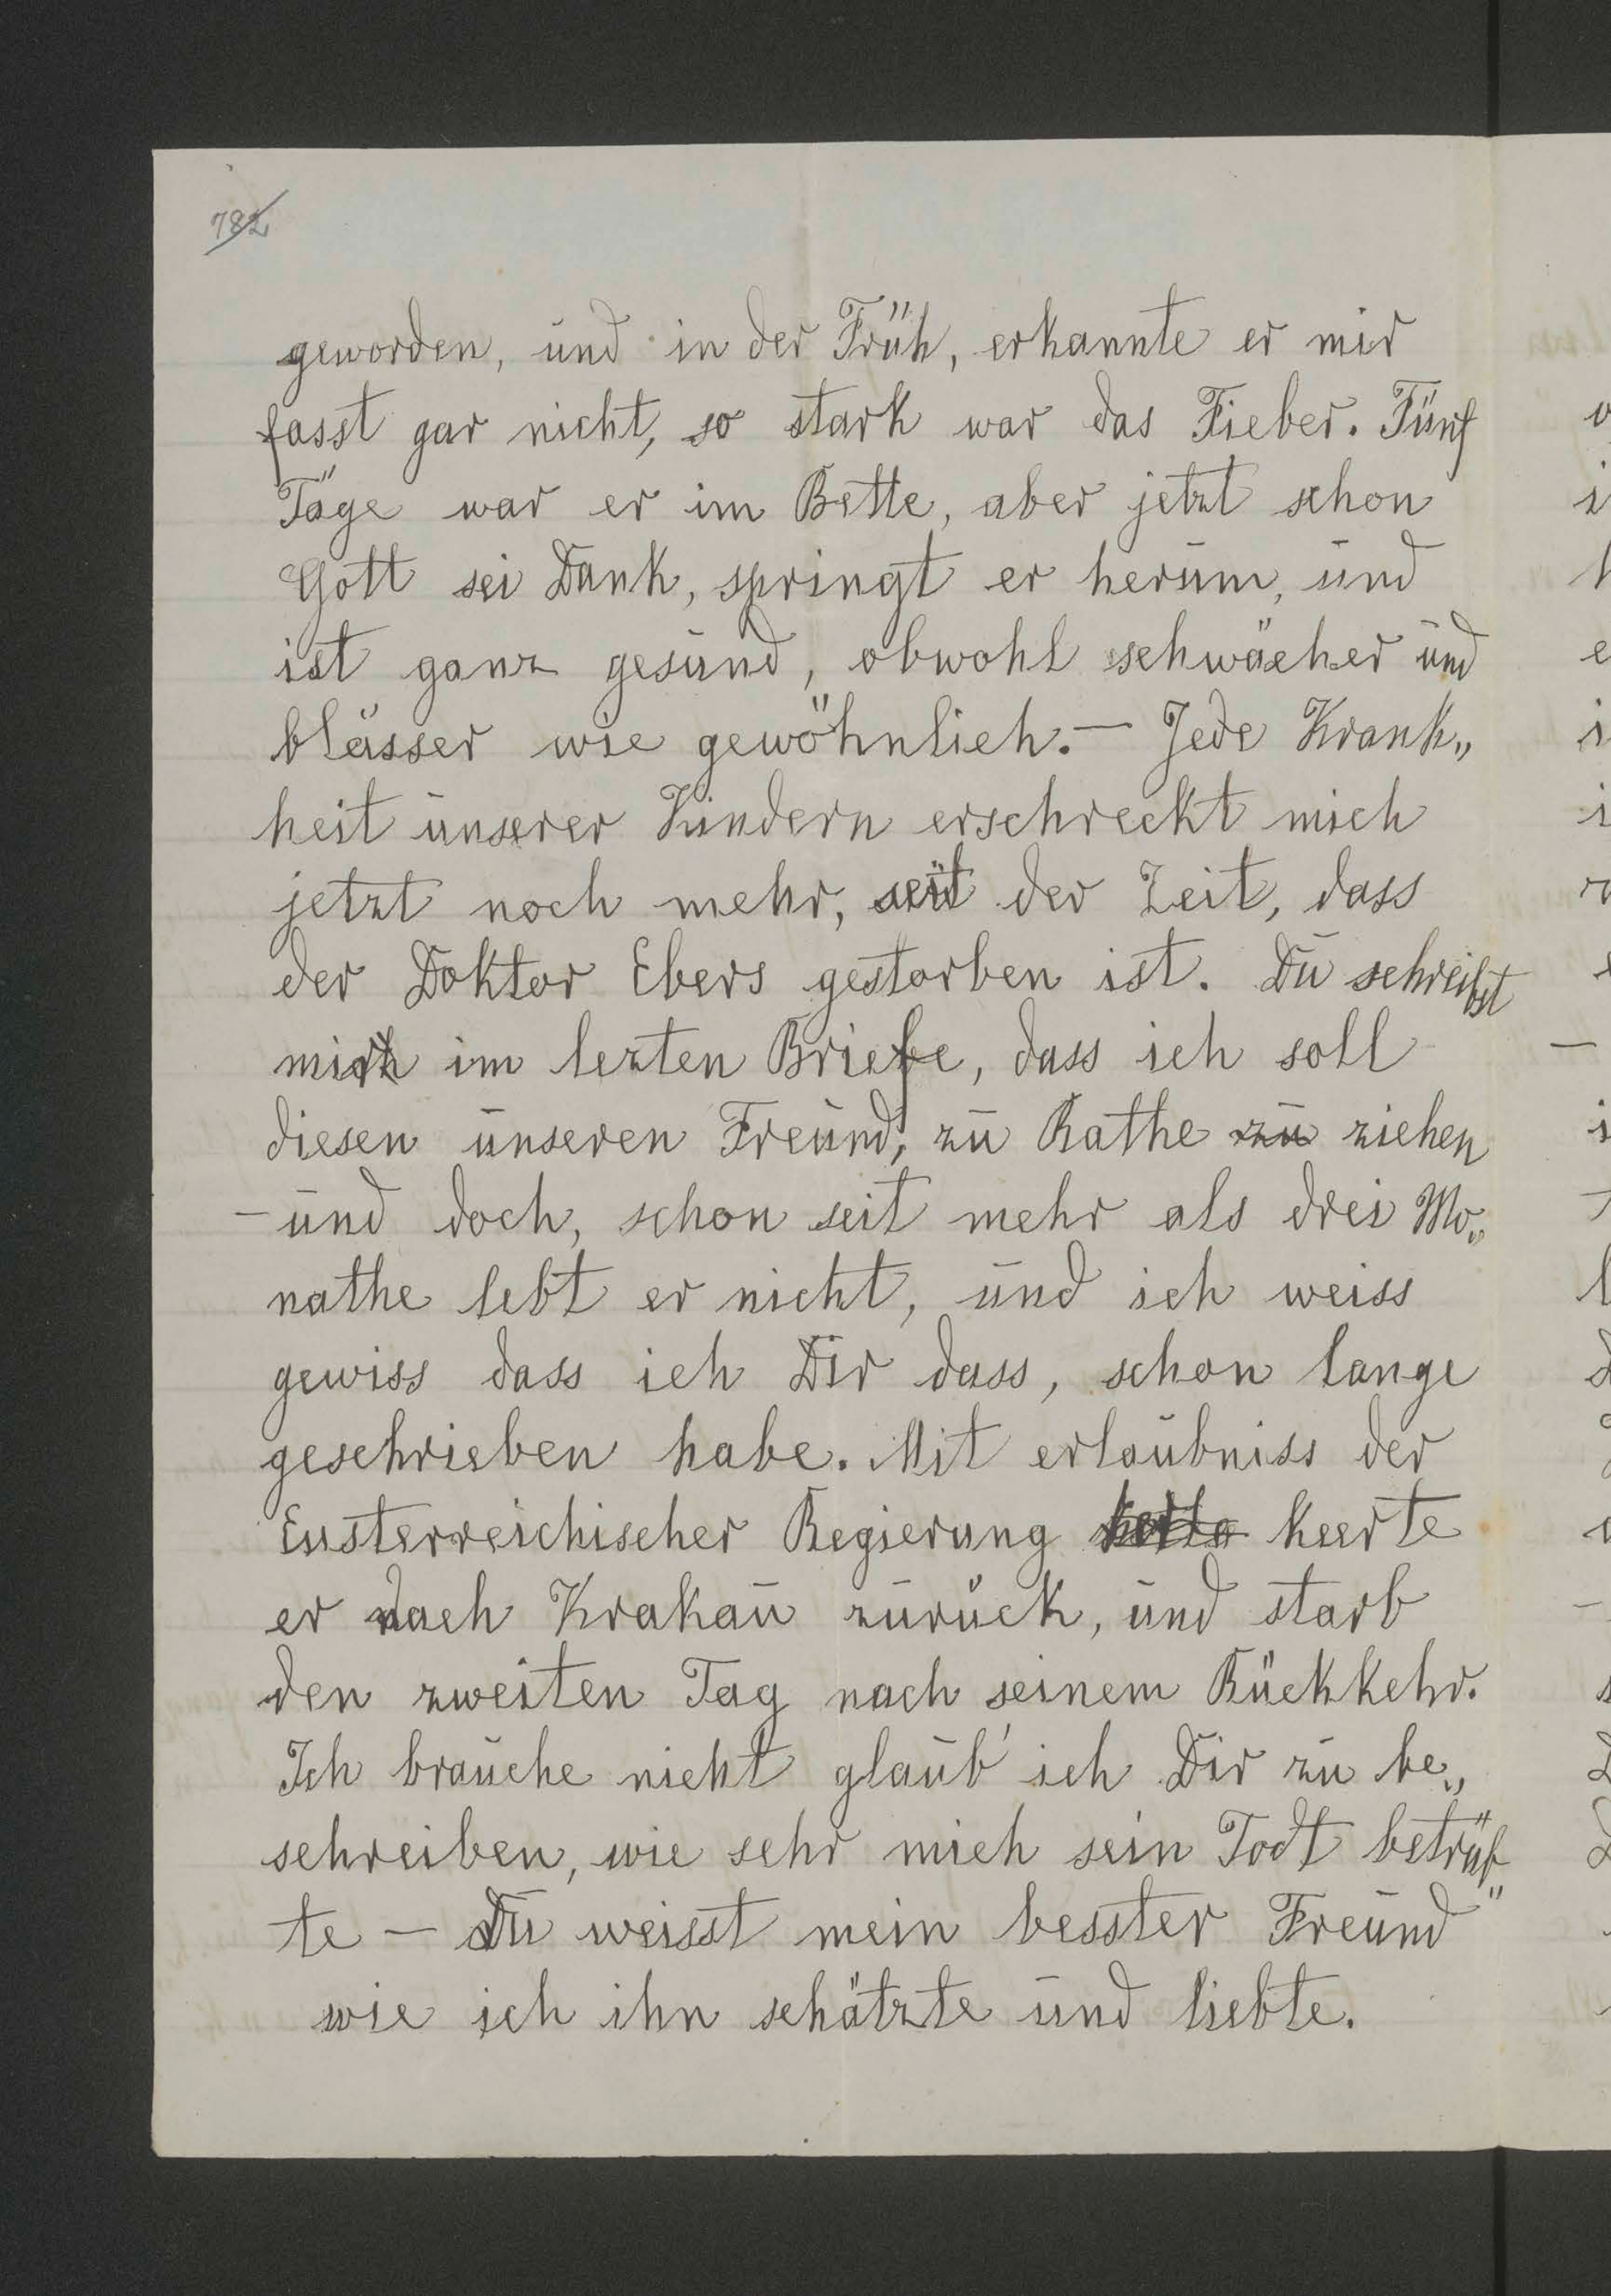 782
geworden, und in der Früh, erkannte er mir
fasst gar nicht, so stark war das Fieber. Fünf
Täge war er im Bette, aber jetzt schon
Gott sei Dank, springt er herum, und
ist ganz gesund, obwohl schwächer und
blässer wie gewöhnlich. — Jede Krank„
heit unserer Kindern erschreckt mich
jetzt noch mehr, seit der Zeit, dass
der Doktor Ebers gestorben ist. Du schreibst
mir im lezten Briefe, dass ich soll
diesen unseren Freund, zu Rathe zu ziehen
— und doch, schon seit mehr als drei Mo„
nathe lebt er nicht, und ich weiss
gewiss dass ich Dir dass, schon lange
geschrieben habe. Mit erlaubniss der
Eusterreichischer Regierung keerte
er nach Krakau zurück, und starb
den zweiten Tag nach seinem Rückkehr.
Ich brauche nicht glaub' ich Dir zu be„
schreiben, wie sehr mich sein Todt betrüb„
te — Du weisst mein besster Freund
wie ich ihn schätzte und liebte.